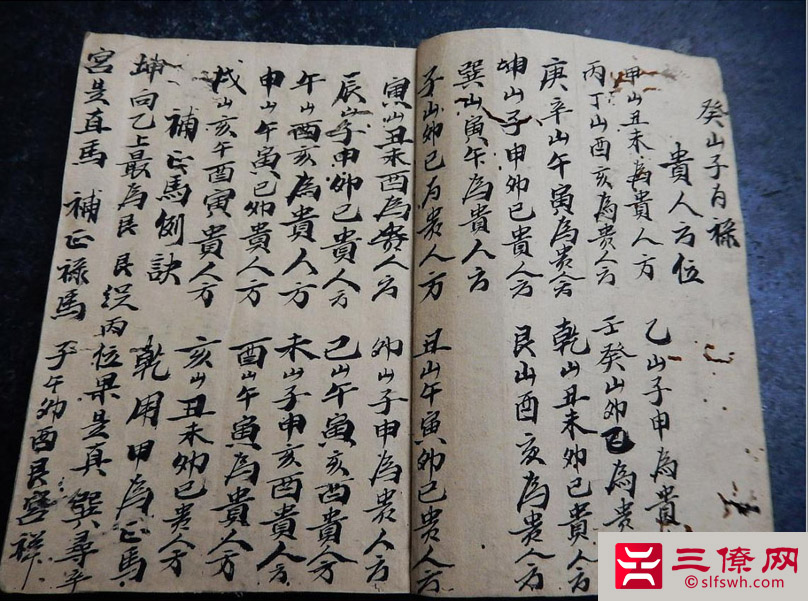 癸山子有禄
貴人方位
甲山丑未為貴人方 乙山子申為貴
丙丁山酉亥為貴人方 壬癸山卯巳為貴
庚辛山午寅為贵人方 乾山丑未卯巳貴人方
坤山子申卯巳貴人方 艮山酉亥為貴人方
巽山寅午為貴人方
子山卯巳有贵人方 丑山午寅卯巳贵人方
寅山丑未酉為贵人方 卯山子申為贵人方
辰山子申卯巳貴人方 巳山午寅亥酉貴人方
午山酉亥為貴人方 未山子申亥酉貴人方
申山午寅巳卯貴人方 酉山午寅為貴人方
戌山亥午酉寅貴人方 亥山丑未卯巳贵人方
補正馬例訣 乾用甲為正馬
坤向乙上最為良 艮從丙位果是真 巽尋辛
宮是直馬 補正禄馬 子午卯酉艮宮祥
三僚网
slfswh.com